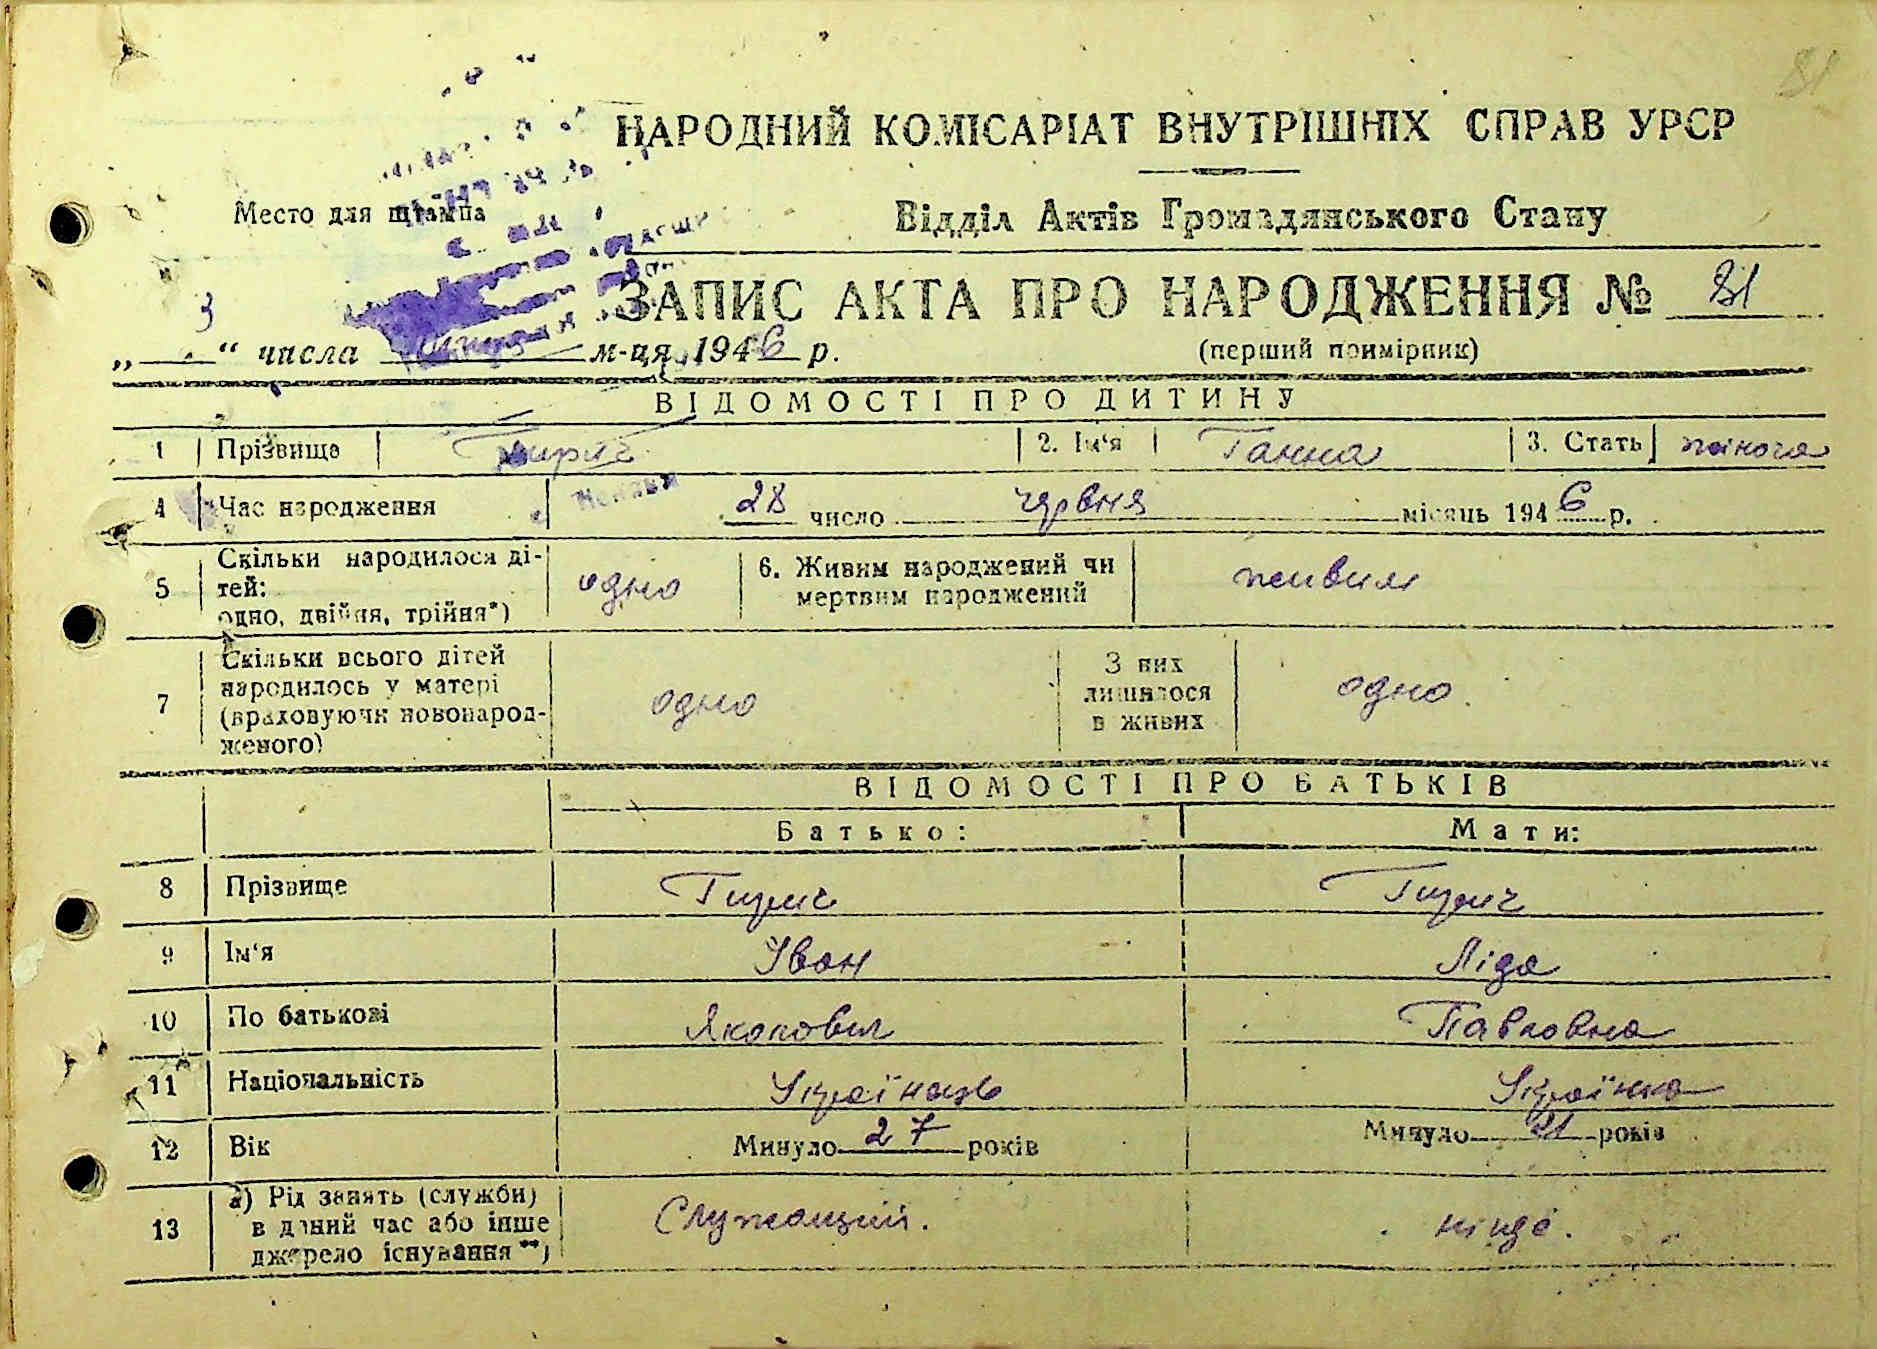 81
НАРОДНИЙ КОМІСАРІАТ ВНУТРІШНІХ СПРАВ УРСР
Место для штампа
Відділ Актів Громадянського Стану
ЗАПИС АКТА ПРО НАРОДЖЕННЯ № 81
„ 3 “ числа м-ця 1946 р. (перший примірник)
ВІДОМОСТІ ПРО ДИТИНУ
1 Прізвище Гирич 2. Ім‘я Ганна 3. Стать жіноча
4 Час народження 28 число червня місяць 1946 р.
5 Скільки народилося ді-
тей:
одно, двійня, трійня*) одно 6. Живим народжений чи
мертвим народжений живим
7 Скільки всього дітей
народилось у матері
(враховуючи новонарод-
женого) одно З них
лишилося
в живих одно
ВІДОМОСТІ ПРО БАТЬКІВ
Батько: Мати:
8 Прізвище Гирич Гирич
9 Ім‘я Іван Ліда
10 По батькові Якопович Павловна
11 Національність Українець Українка
12 Вік Минуло 27 років Минуло 21 років
13 а) Рід занять (служби)
в даний час або інше
джерело існування**) Служащий. нігде.